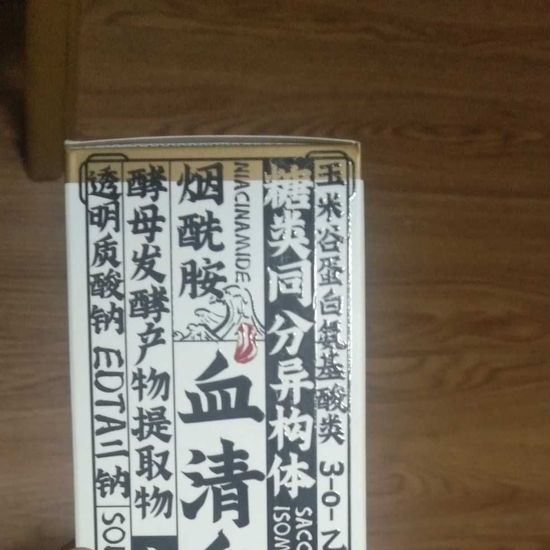 玉米谷蛋白氨基酸类 3-O-乙
糖类同分异构体
SACC
ISOM
NIACINAMIDE
烟酰胺
血清
酵母发酵产物提取物
透明质酸钠 EDTA二钠